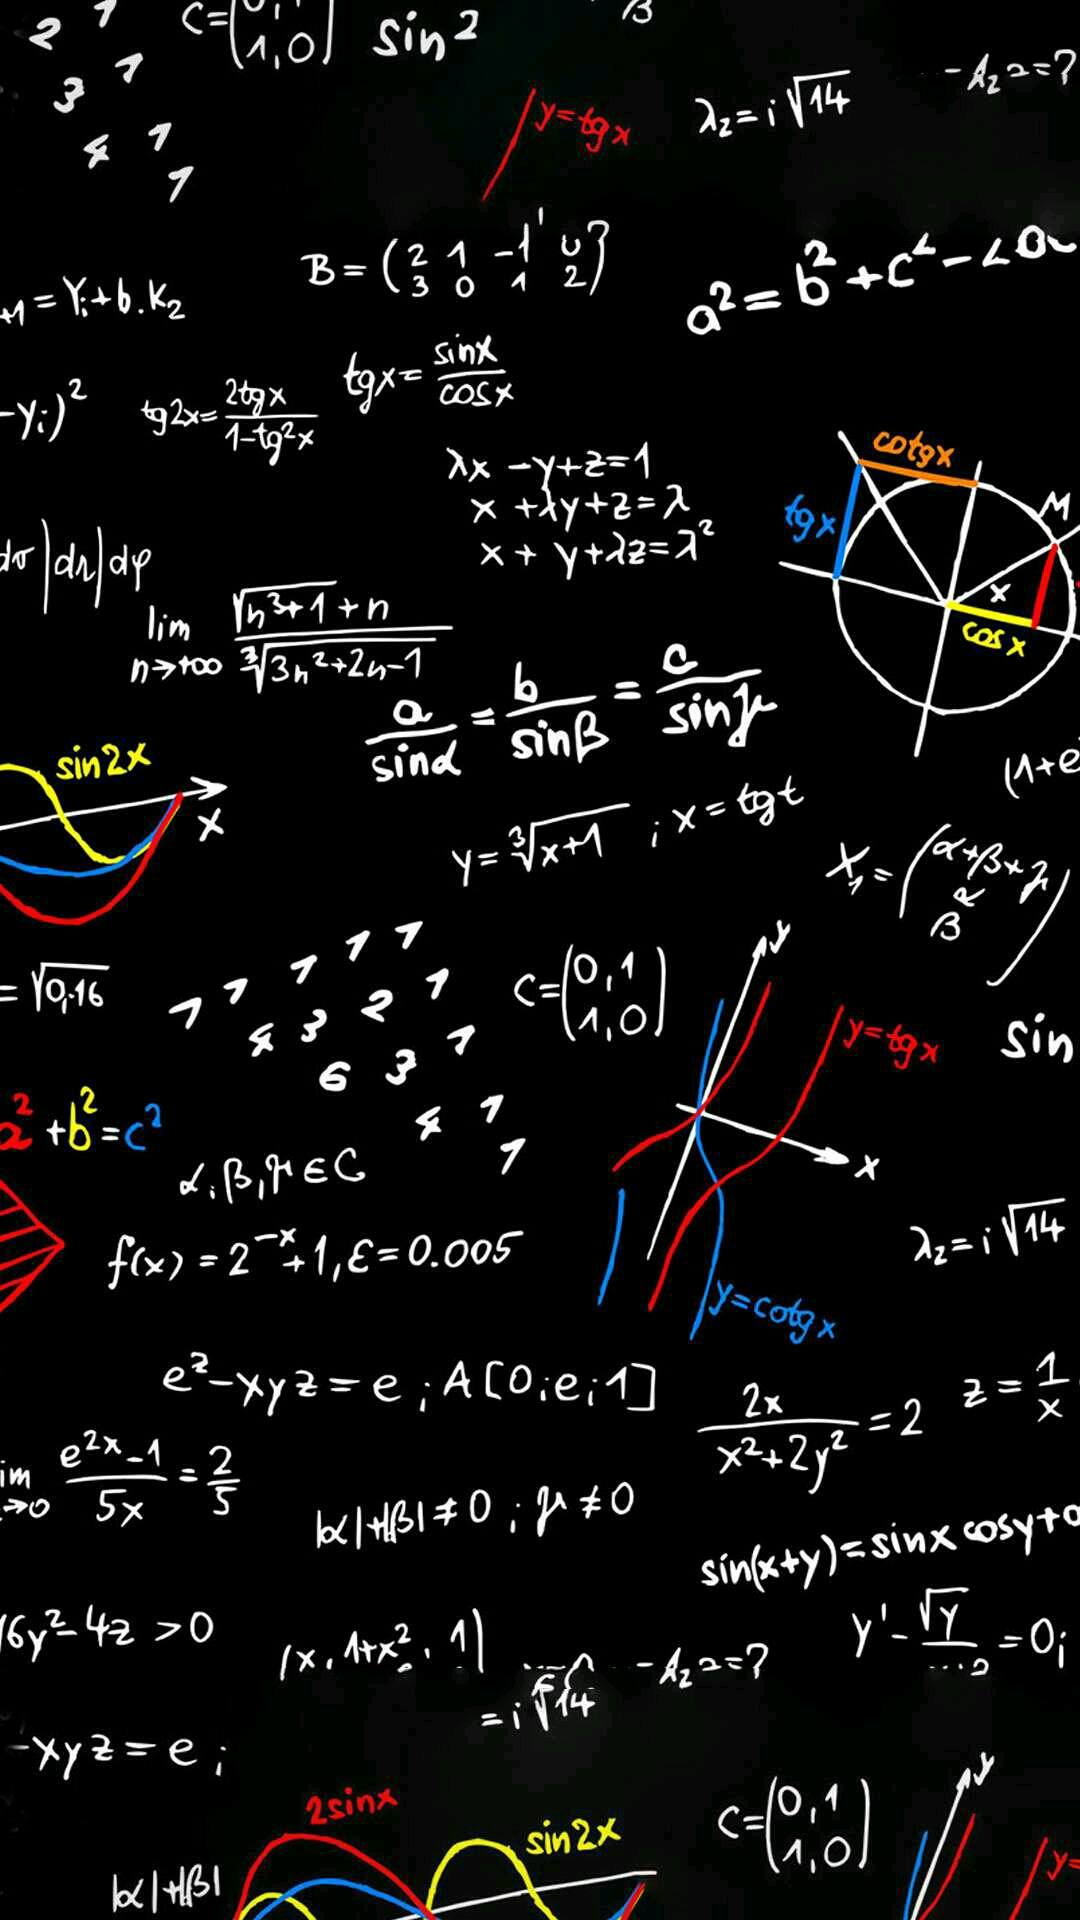 2 1
3 1
4 1
1
C=(0,1
1,0)
sin²
β
y=tgx
λ₂=i√14
-λ₂ 2=?
B=(2 1 -1 0
3 0 1 2)
+1=Yᵢ+b.K₂
a²=b²+c²-2
-Yᵢ)²
tg2x=2tgx/1-tg²x
tgx=sinx/cosx
λx-y+z=1
x+λy+z=λ
x+y+λz=λ²
cotgx
tgx
M
x
cosx
|dr|dφ
lim n→+∞ √n³+1+n/∛3n²+2n-1
a/sinα=b/sinβ=c/sinγ
sin2x
x
(1+e
y=∛x+1 ; x=tgt
X₁=(α+β+γ
β)
=√0,16
1 1 1 1 1
4 3 2 1
6 3 1
4 1
1
C=(0,1
1,0)
y
y=tgx
sin
a²+b²=c²
x
α,β,γ∈C
f(x)=2⁻ˣ+1,ε=0.005
λ₂=i√14
y=cotgx
eᶻ-xyz=e;A[0;e;1]
2x/x²+2y²=2
z=1/x
im →0 e²ˣ-1/5x=2/5
|α|+|β|≠0;γ≠0
sin(x+y)=sinx cosy+
6y²-4z>0
(x,1+x²,1)
-λ₂ 2=?
y'-√y =0;
=i√14
-xyz=e;
2sinx
sin2x
C=(0,1
1,0)
y
y=
|α|+|β|